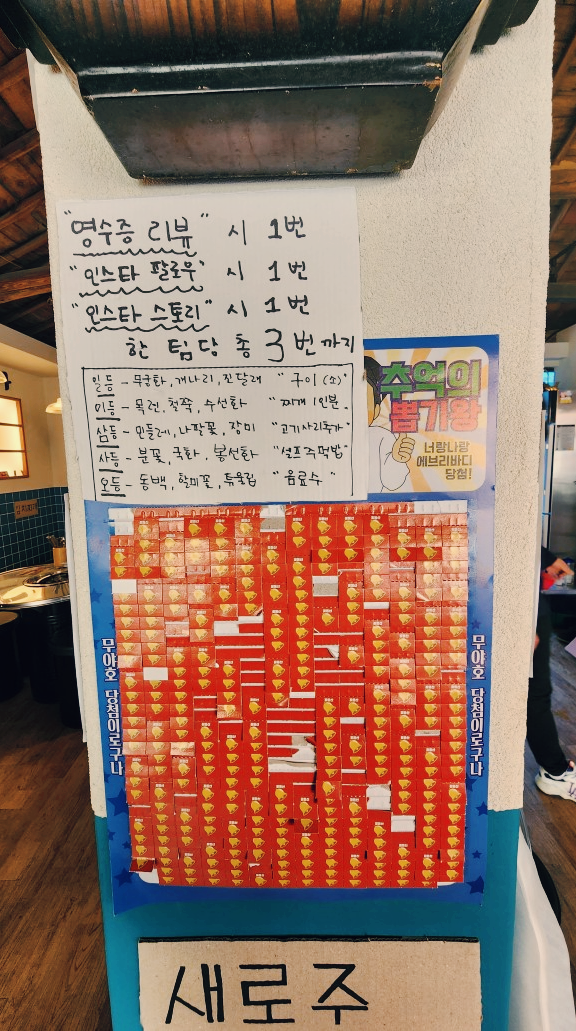 "영수증 리뷰" 시 1번
"인스타 팔로우" 시 1번
"인스타 스토리" 시 1번
한 팀당 총 3번까지
일등 - 무궁화, 개나리, 진달래 "구이(소)"
이등 - 목련, 철쭉, 수선화 "찌개 1인분"
삼등 - 민들레, 나팔꽃, 장미 "고기사리추가"
사등 - 분꽃, 국화, 봉선화 "셀프주먹밥"
오등 - 동백, 할미꽃, 튜울립 "음료수"
추억의
뽑기왕
너랑나랑
에브리바디
당첨!
무야호 당첨이로구나
무야호 당첨이로구나
새로주